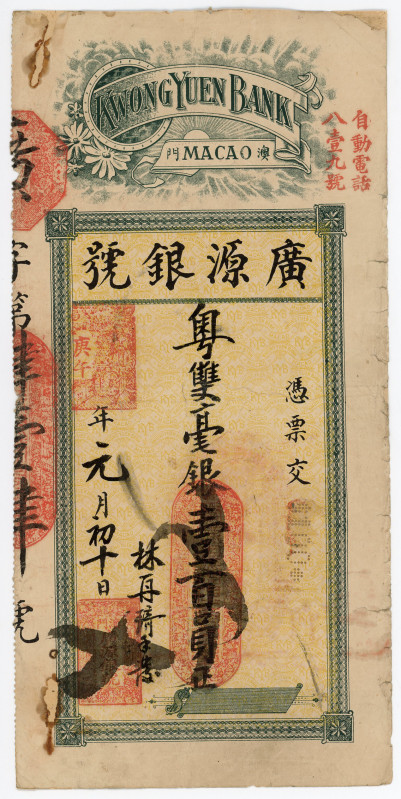 KWONG YUEN BANK
門 MACAO 澳
自動電話
八壹九號
廣源銀號
憑票交
粵雙毫銀壹百員正
庚午
年元月初十日
林再
字第肆壹肆號